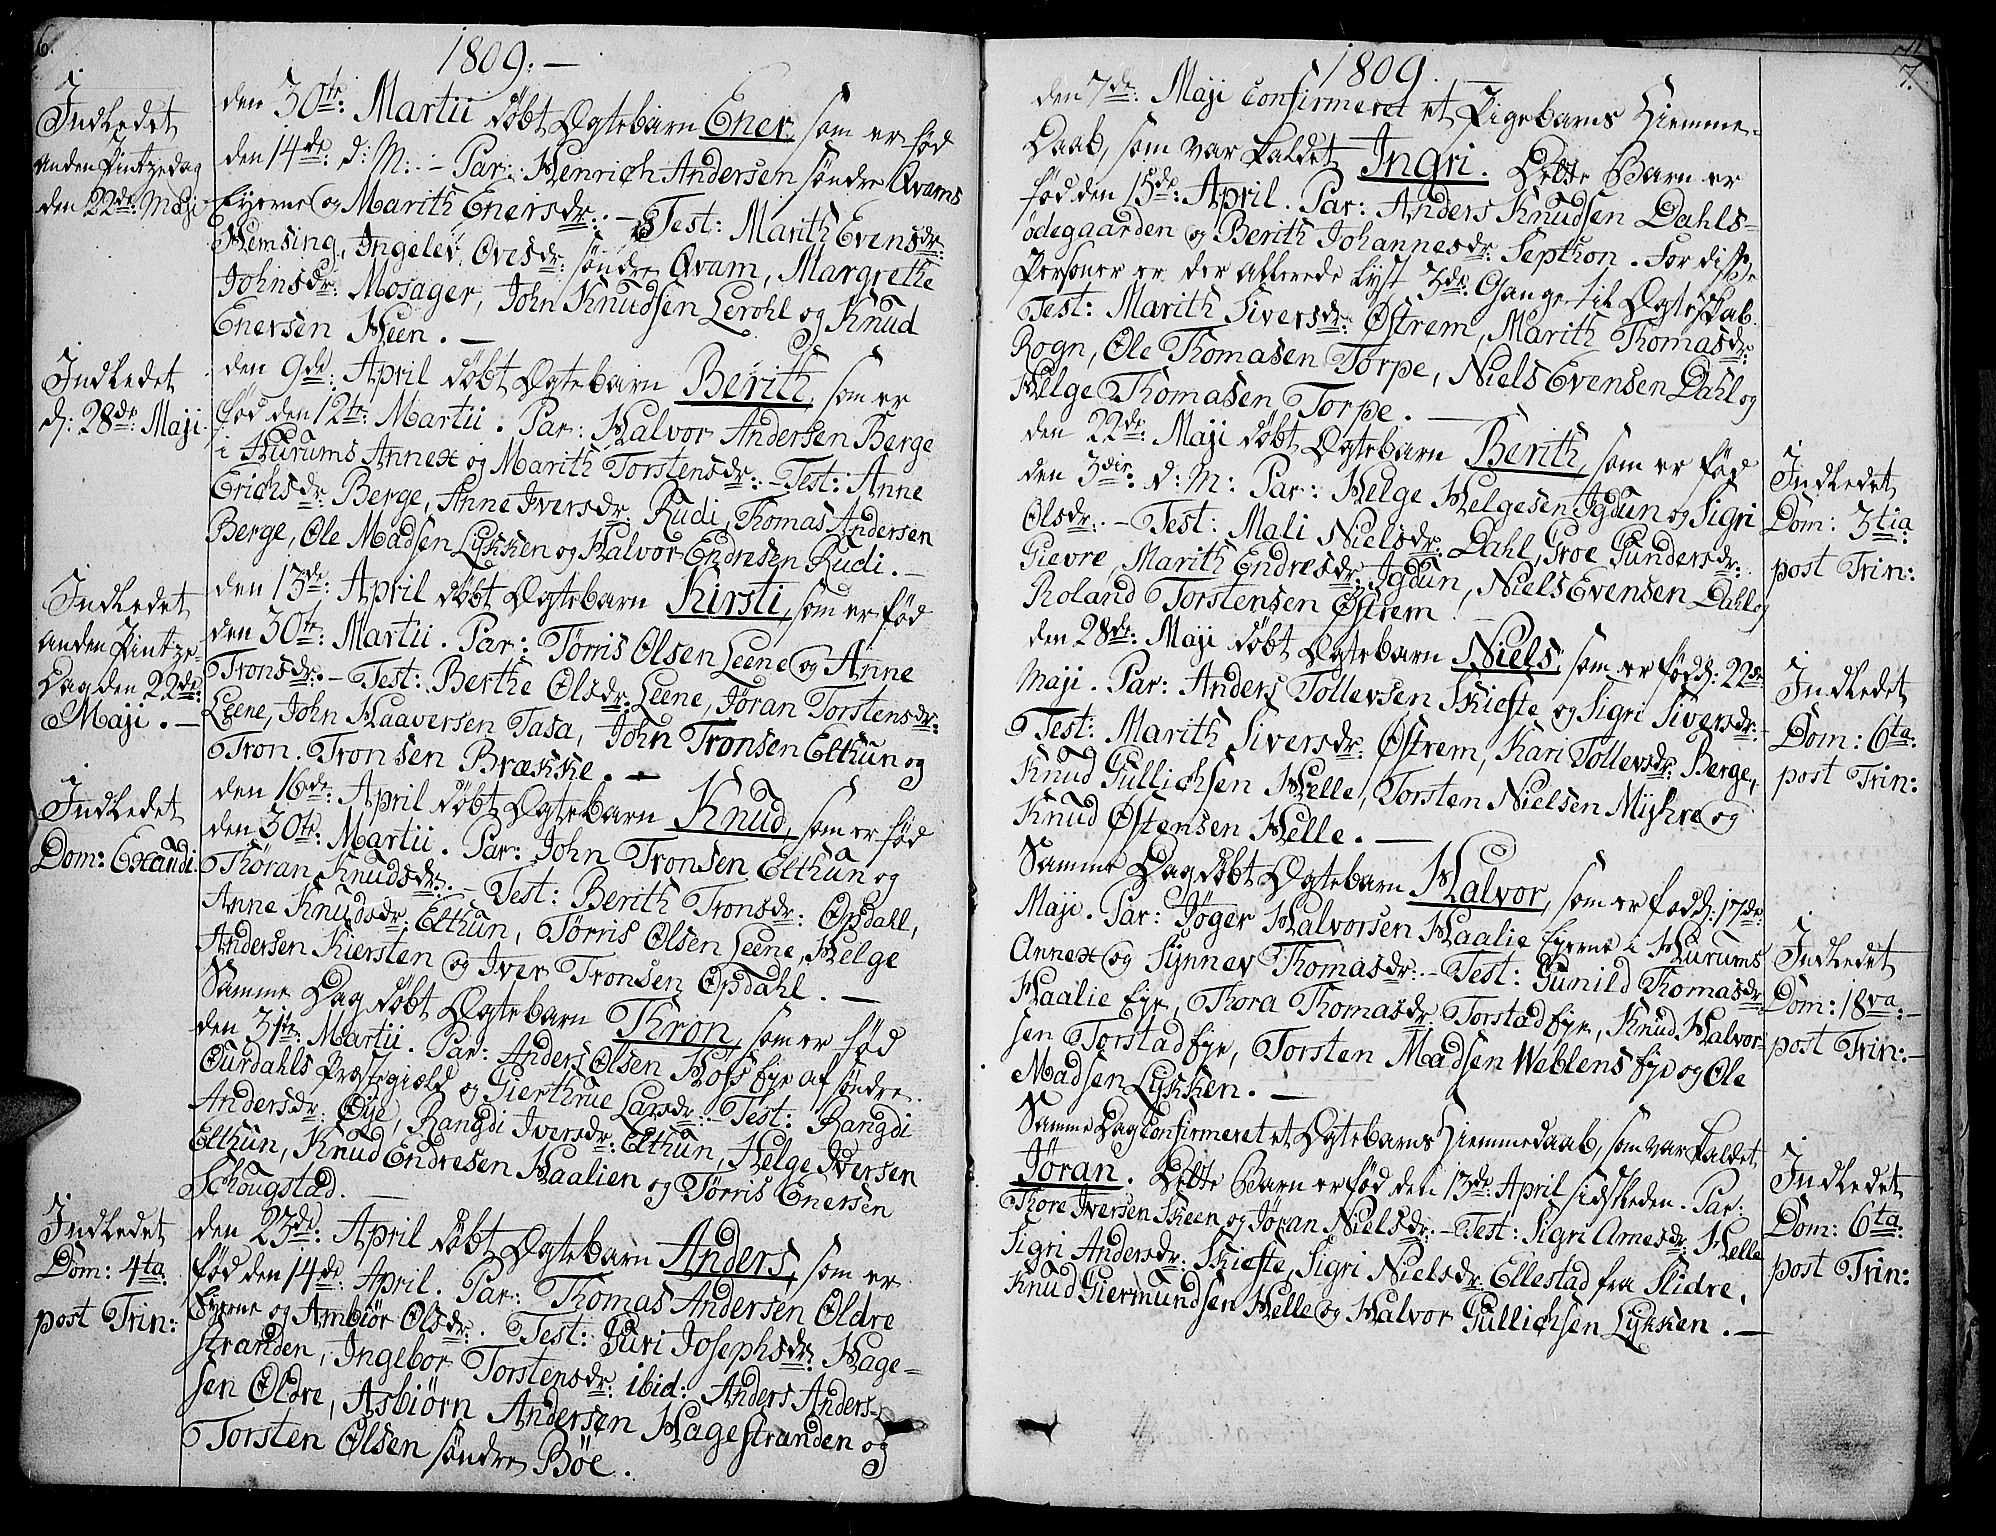 6.
1809. –
Indledet
anden Pintzedag
den 22de: Maji
den 30te: Martii döbt Ægtebarn Ener, som er fød
den 14de: d: M: – Par: Henrich Andersen söndre Qvams
Eyerne og Marith Enersdr: – Test: Marith Evensdr:
Hemsing, Ingelev Ovesdr: söndre Qvam, Margrethe
Johnsdr: Mosager, John Knudsen Lerohl og Knud
Enersen Heen. –
Indledet
d: 28de: Maji.
den 9de: April döbt Ægtebarn Berith, som er
fød den 12te: Martii. Par: Halvor Andersen Berge
i Hurums Annex og Marith Torstensdr: – Test: Anne
Erichsdr: Berge, Anne Iversdr: Rudi, Thomas Andersen
Berge, Ole Madsen Lykken og Halvor Endresen Rudi. –
Indledet
anden Pintze-
Dag den 22de:
Maji. –
den 13de: April döbt Ægtebarn Kirsti, som er fød
den 30te: Martii. Par: Törris Olsen Leene og Anne
Tronsdr: – Test: Berthe Olsdr: Leene, Jöran Torstensdr:
Leene, John Haaversen Tasa, John Tronsen Elthun og
Tron Tronsen Brække. –
Indledet
Dom: Exaudi.
den 16de: April döbt Ægtebarn Knud, som er fød
den 30te: Martii. Par: John Tronsen Elthun og
Thöran Knudsdr: – Test: Berith Tronsdr: Opdahl,
Anne Knudsdr: Elthun, Törris Olsen Leene, Helge
Andersen Kiersten og Iver Tronsen Opdahl. –
Samme Dag döbt Ægtebarn Thron, som er fød
den 31te: Martii. Par: Anders Olsen Hofs Eye af söndre
Ourdahls Præstegiæld og Gierthrue Larsdr: – Test: Rangdi
Andersdr: Öye, Rangdi Iversdr: Elthun, Helge Iversen
Elthun, Knud Endresen Haalien og Törris Enersen
Schougstad. –
Indledet
Dom: 4ta:
post Trin:
den 23de: April döbt Ægtebarn Anders, som er
fød den 14de: April. Par: Thomas Andersen Oldre
Eyerne og Ambiör Olsdr: Test: Guri Josephsdr: Hage-
stranden, Ingebor Torstensdr: ibid: Anders Anders-
sen Oldre, Asbiörn Andersen Hagestranden og
Torsten Olsen söndre Böe.
7.
1809.
den 7de: Maji confirmeret et Pigebarns Hiemme-
Daab, som var kaldet Ingri. Dette Barn er
fød den 15de: April. Par: Anders Knudsen Dahls-
ödegaarden og Berith Johannesdr: Septhon. For disse
Personer er der allerede lyst 3de: Gange til Ægteskab.
Test: Marith Siversdr: Östrem, Marith Thomasdr:
Rogn, Ole Thomasen Torpe, Niels Evensen Dahl og
Helge Thomasen Torpe. –
Indledet
Dom: 3tia:
post Trin:
den 22de: Maji döbt Ægtebarn Berith, som er fød
den 3die: d: M: Par: Helge Helgesen Igdun og Sigri
Olsdr: – Test: Mali Nielsdr: Dahl, Groe Gundersdr:
Gievre, Marith Endresdr: Igdun, Niels Evensen Dahl og
Roland Torstensen Östrem.
Indledet
Dom: 6ta:
post Trin:
den 28de: Maji döbt Ægtebarn Niels, som er fød d: 22de:
Maji. Par: Anders Tollevsen Skiefte og Sigri Siversdr: –
Test: Marith Siversdr: Östrem, Kari Tollevsdr: Berge,
Knud Gullichsen Helle, Torsten Nielsen Myhre og
Knud Östensen Helle. –
Indledet
Dom: 18va: –
post Trin: –
Samme Dag döbt Ægtebarn Halvor, som er fød d: 17de:
Maji. Par: Jöger Halvorsen Haalie Eyerne i Hurums
Annex og Synnev Thomasdr: – Test: Gunild Thomasdr:
Haalie Eye, Thora Thomasdr: Torstad Eye, Knud Halvor-
sen Torstad Eye, Torsten Madsen Weblens Eye og Ole
Madsen Lykken. –
Indledet
Dom: 6ta:
post Trin:
Samme Dag confirmeret et Ægtebarns Hiemmedaab, som var kaldet
Jöran. Dette Barn er fød den 13de: April sidstleden. Par:
Thore Iversen Skeen og Jöran Nielsdr: – Test: Sigri Arnesdr: Helle
Sigri Andersdr: Skiefte, Sigri Nielsdr: Ellestad fra Slidre,
Knud Giermundsen Helle og Halvor Gullichsen Lykken. –